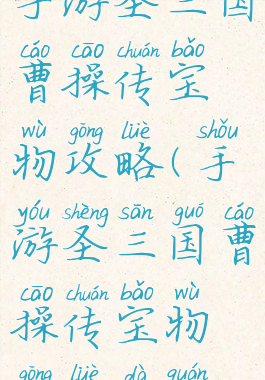 手游圣三国
cáo cāo chuán bǎo
曹操传宝
wù gōng lüè shǒu
物攻略(手
yóu shèng sān guó cáo
游圣三国曹
cāo chuán bǎo wù
操传宝物
gōng lüè dà quán